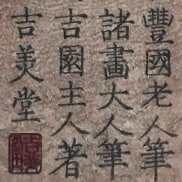 豐國老人筆
諸畵大人筆
吉圀主人著
吉美堂